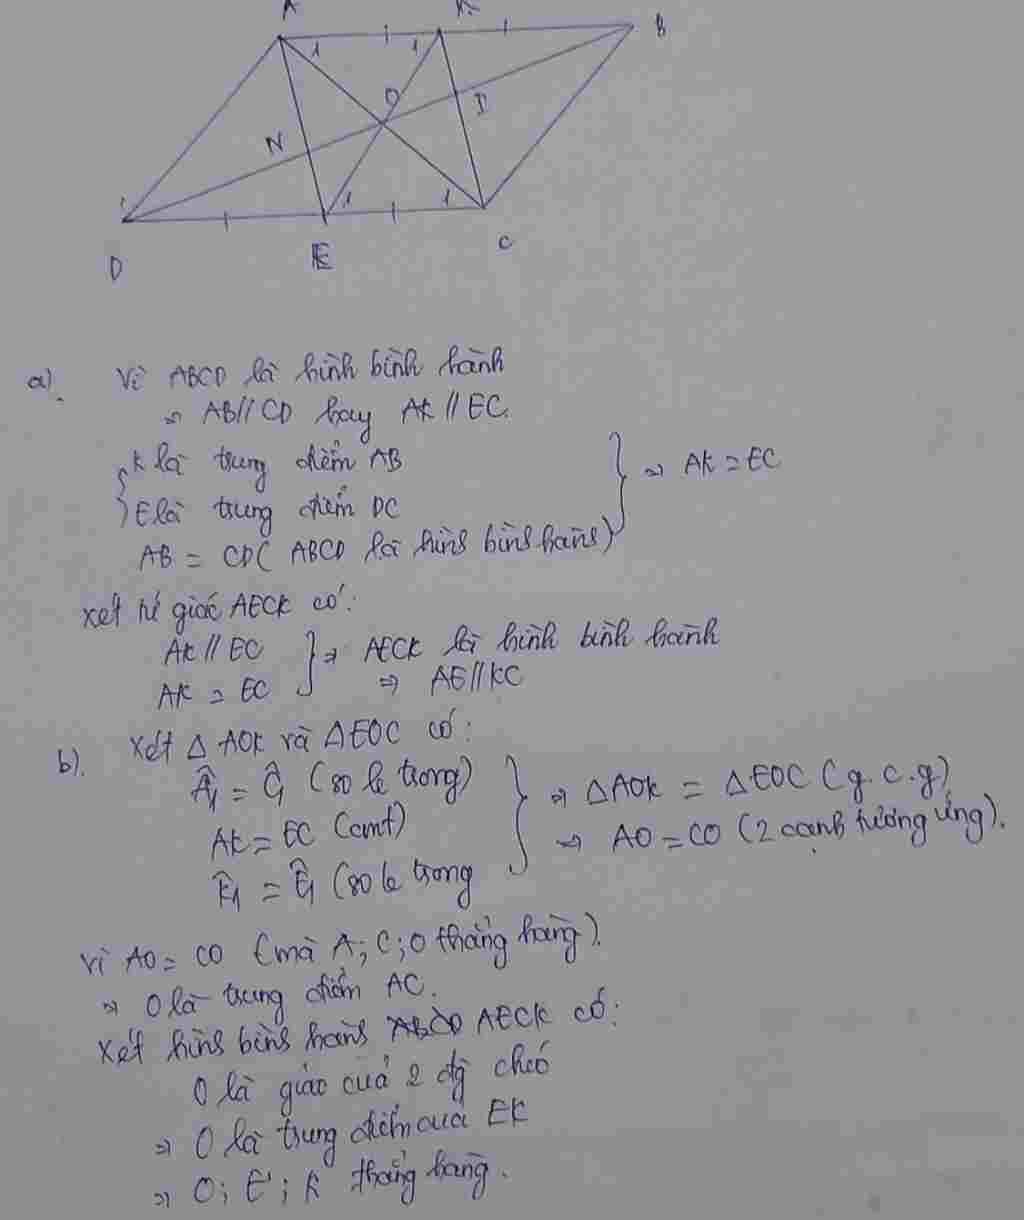 A K B
1 1
O I
N
1 1
D E C
a). Vì ABCD là hình bình hành
⇒ AB // CD hay AK // EC.
K là trung điểm AB
E là trung điểm DC
AB = CD ( ABCD là hình bình hành)
⇒ AK = EC
Xét tứ giác AECK có:
AK // EC
AK = EC
⇒ AECK là hình bình hành
⇒ AE // KC
b). Xét Δ AOK và Δ EOC có:
Â₁ = Ĉ₁ (so le trong)
AK = EC (cmt)
K̂₁ = Ê₁ (so le trong
⇒ Δ AOK = Δ EOC (g.c.g)
⇒ AO = CO (2 cạnh tương ứng).
Vì AO = CO (mà A; C; O thẳng hàng).
⇒ O là trung điểm AC.
Xét hình bình hành AECK có:
O là giao của 2 đg chéo
⇒ O là trung điểm của EK
⇒ O; E; K thẳng hàng.